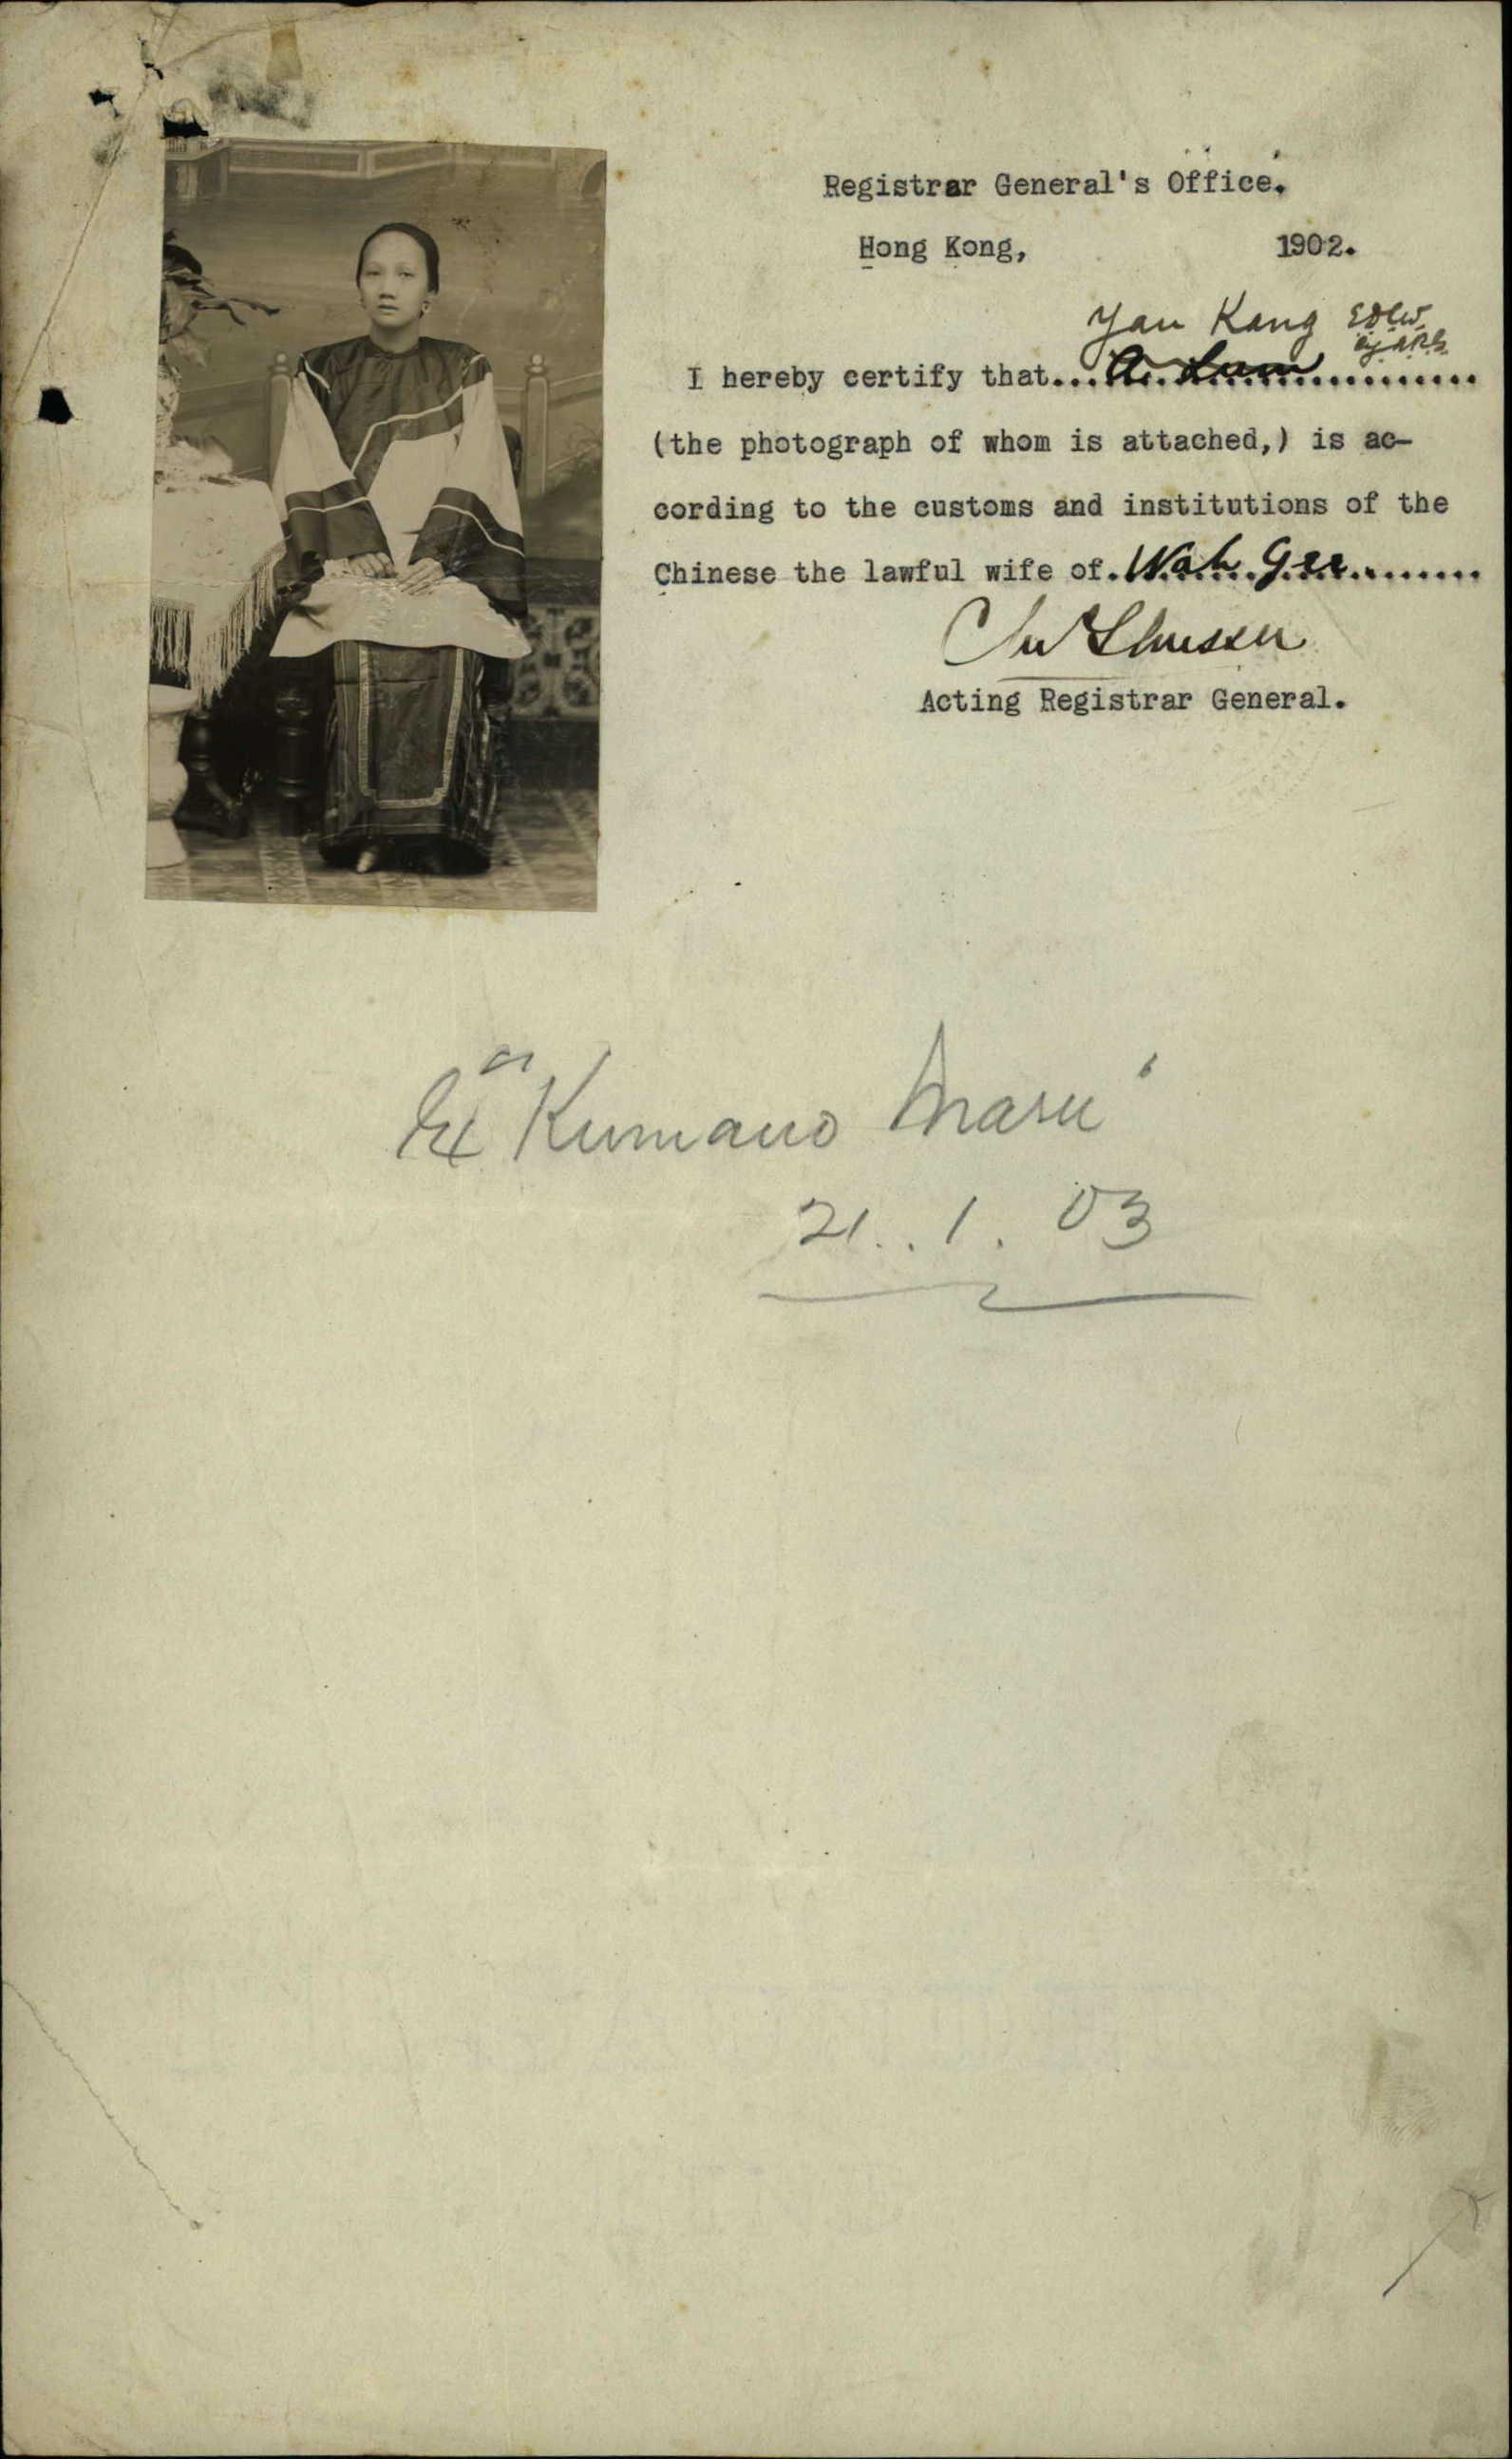 Registrar General's Office.
Hong Kong, 1902.
Yau Kang
I hereby certify that...A. Lum...................
(the photograph of whom is attached,) is ac-
cording to the customs and institutions of the
Chinese the lawful wife of. Wah Gee..........
Acting Registrar General.
Ex "Kumano Maru"
21. 1. 03